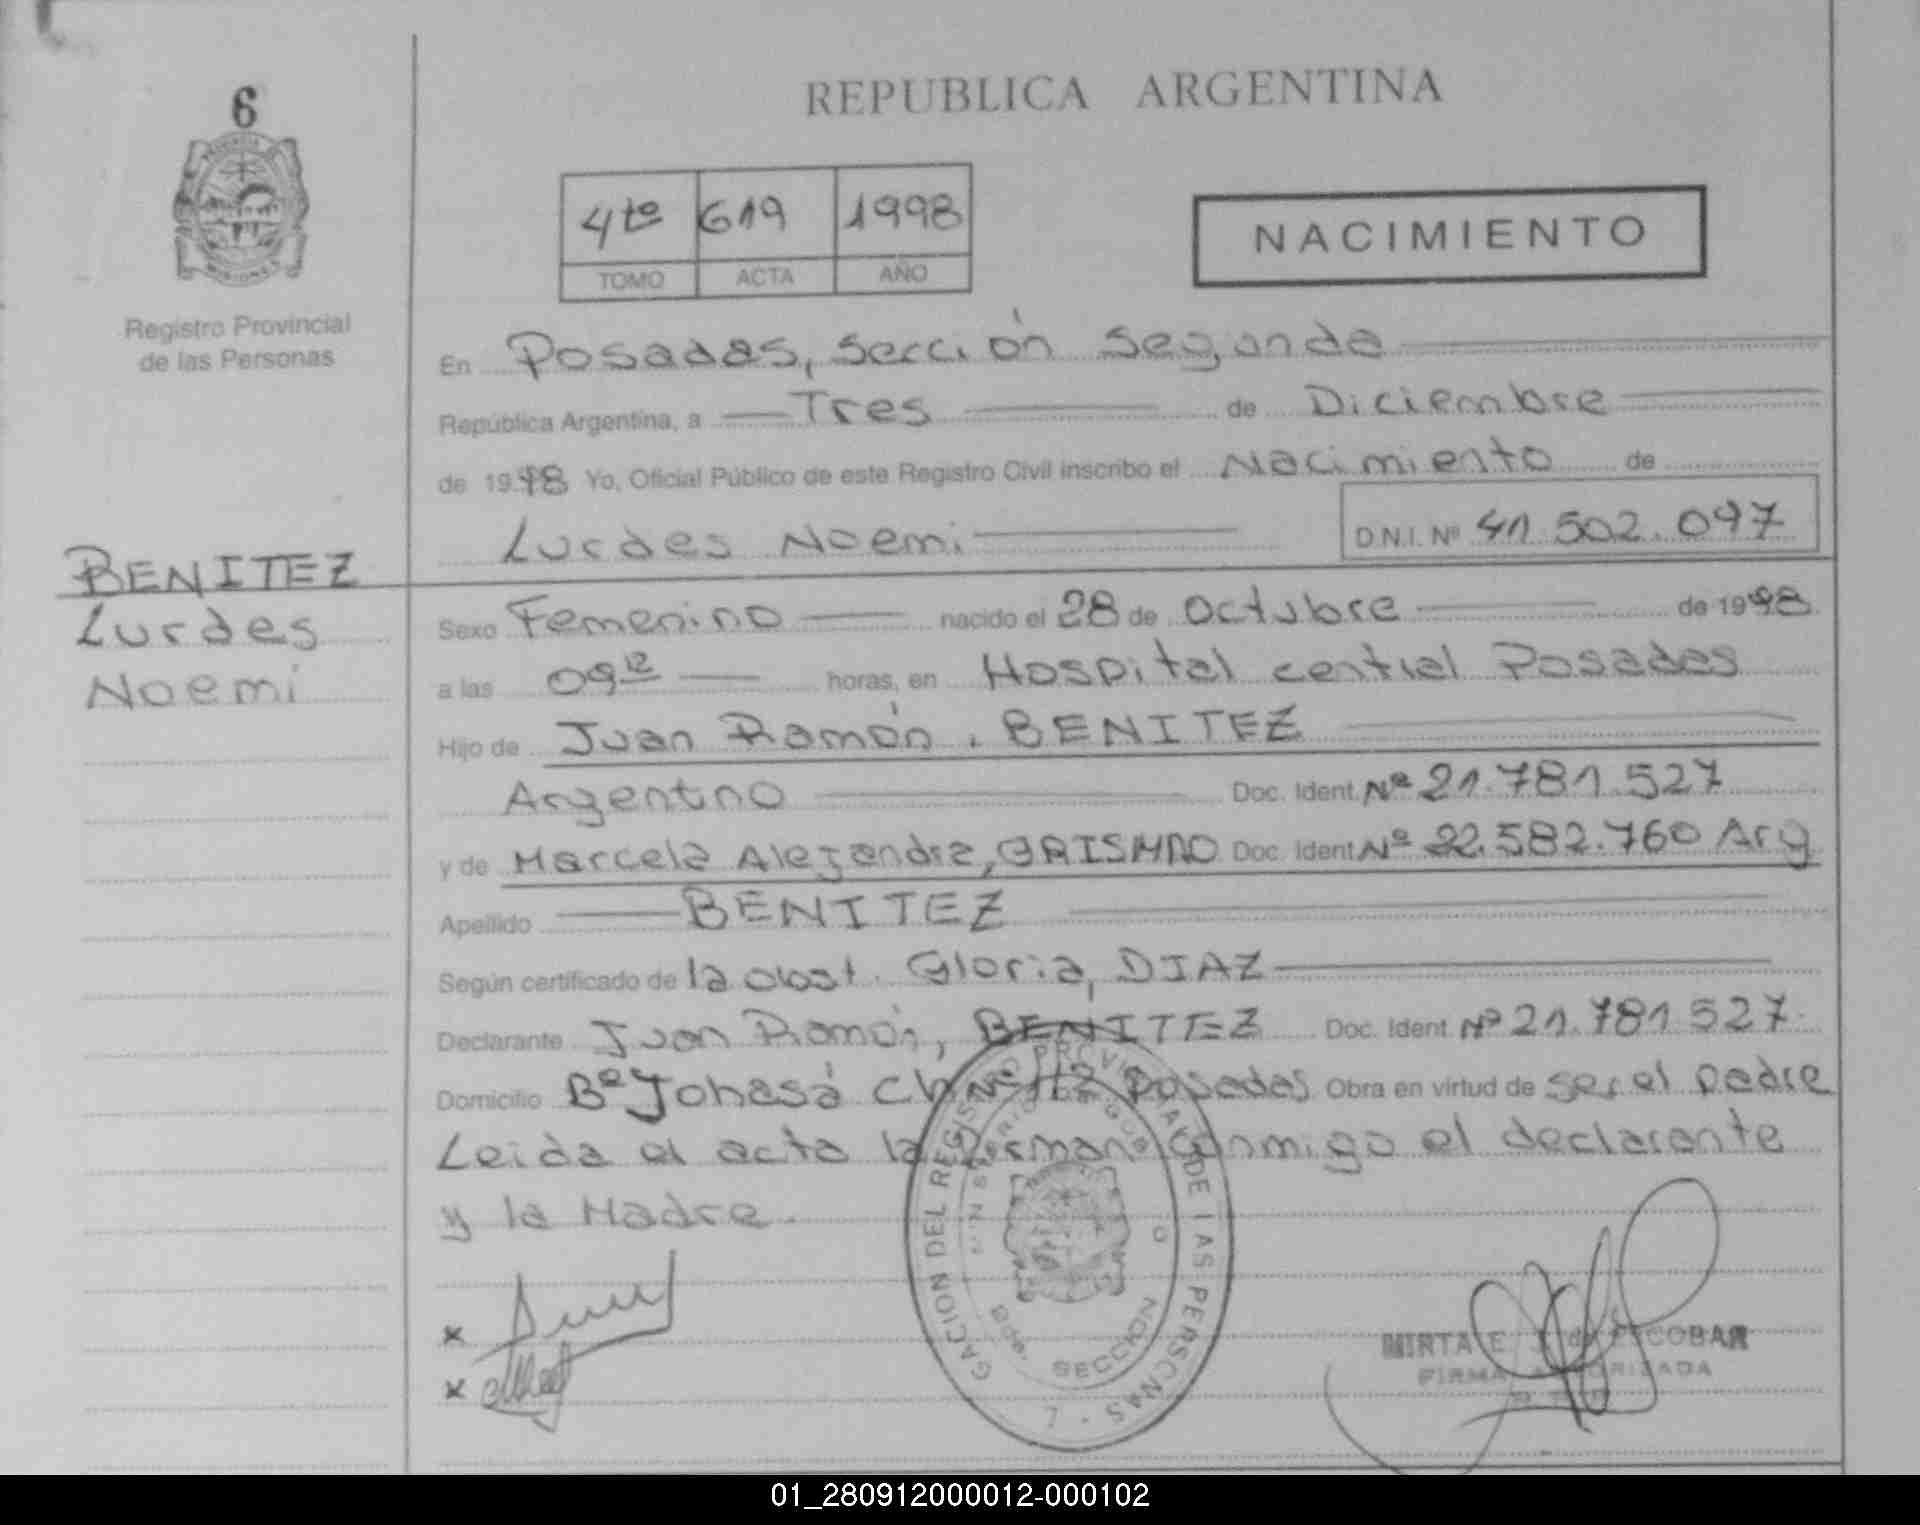 6
Registro Provincial
de las Personas
REPUBLICA ARGENTINA
4to 619 1998
TOMO ACTA AÑO
NACIMIENTO
En Posadas, sección segunda
República Argentina, a Tres de Diciembre
de 1998 Yo, Oficial Público de este Registro Civil inscribo el Nacimiento de
Lurdes Noemi D.N.I. Nº 41.502.097
BENITEZ
Lurdes
Noemi
Sexo Femenino nacido el 28 de Octubre de 1998
a las 09 12 horas, en Hospital central Posadas
Hijo de Juan Ramón, BENITEZ
Argentino Doc. Ident. Nº 21.781.527
y de Marcela Alejandra, Doc. Ident Nº 22.582.760 Arg
Apellido BENITEZ
Según certificado de la obst. Gloria, DIAZ
Declarante Juan Ramón, BENITEZ Doc. Ident. Nº 21.781.527
Domicilio Bº Nº 112 Posadas Obra en virtud de ser el padre
Leida el acta la firman conmigo el declarante
y la Madre.
GACION DEL REGISTRO PROVINCIAL DE LAS PERSONAS
MINISTERIO GOB
SECCION
MIRTA E. de ESCOBAR
FIRMA AUTORIZADA
01_280912000012-000102